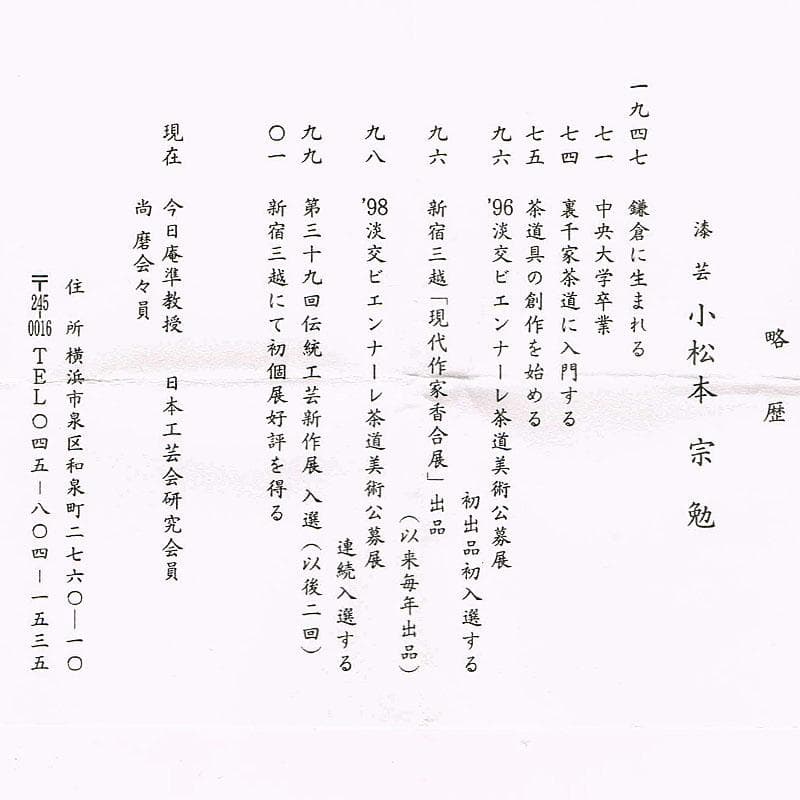 略歴
漆芸 小松本宗勉
一九四七 鎌倉に生まれる
七一 中央大学卒業
七四 裏千家茶道に入門する
七五 茶道具の創作を始める
九六 '96淡交ビエンナーレ茶道美術公募展
初出品初入選する
九六 新宿三越「現代作家香合展」出品
(以来毎年出品)
九八 '98淡交ビエンナーレ茶道美術公募展
連続入選する
九九 第三十九回伝統工芸新作展 入選(以後二回)
〇一 新宿三越にて初個展好評を得る
現在 今日庵準教授 日本工芸会研究会員
尚 磨会々員
住 所 横浜市泉区和泉町二七六〇―一〇
〒245-0016 TEL〇四五―八〇四―一五三五